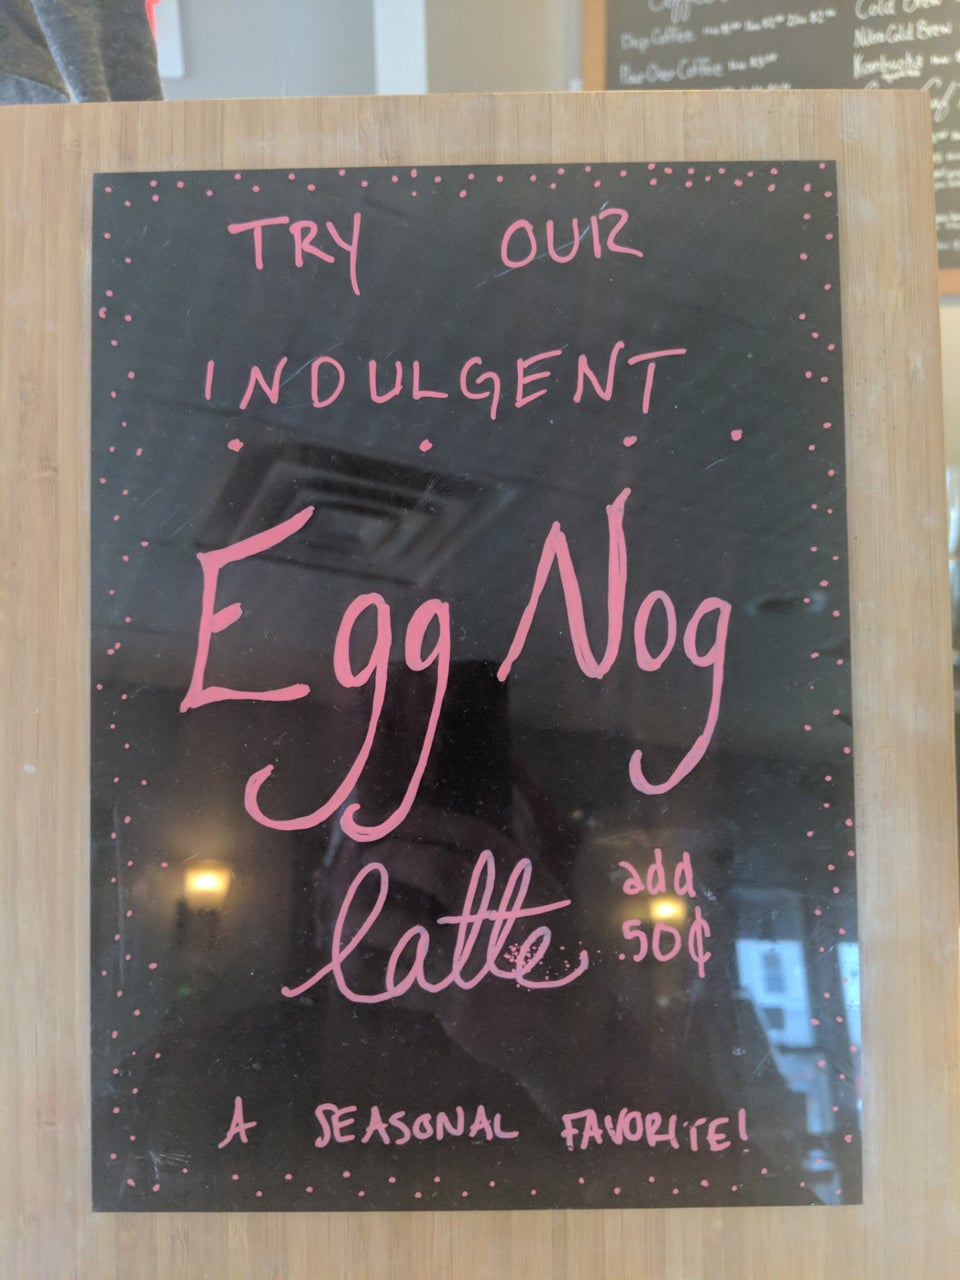 TRY OUR
INDULGENT
Egg Nog
latte
add
.50¢
A SEASONAL FAVORITE!
Drip Coffee
Pour Over Coffee
Cold Brew
Nitro Cold Brew
Kombucha